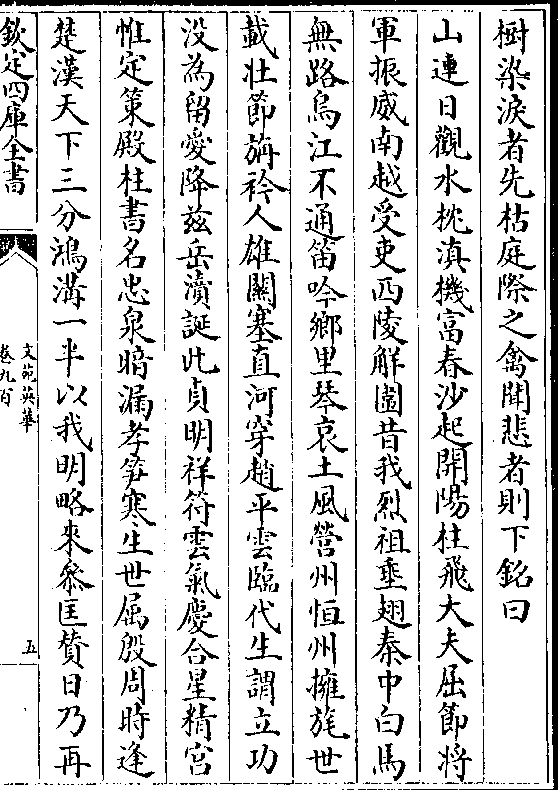 樹染淚者先枯庭際之禽聞悲者則下銘曰
山連日觀水枕滇機富春沙起開陽柱飛大夫屈節將
軍振威南越受吏西陵解圍昔我烈祖垂翅秦中白馬
無路烏江不通笛吟鄉里琴哀土風營州恒州擁旄世
載壯節旃矜人雄關塞直河穿趙平雲臨代生謂立功
没為留愛降兹岳瀆誕此貞明祥符雲氣慶合星精宫
惟定策殿柱書名忠泉暗漏孝筍寒生世屬殷周時逢
楚漢天下三分鴻溝一半以我明略來叅匡贊日乃再
欽定四庫全書
文苑英華
卷九百
五